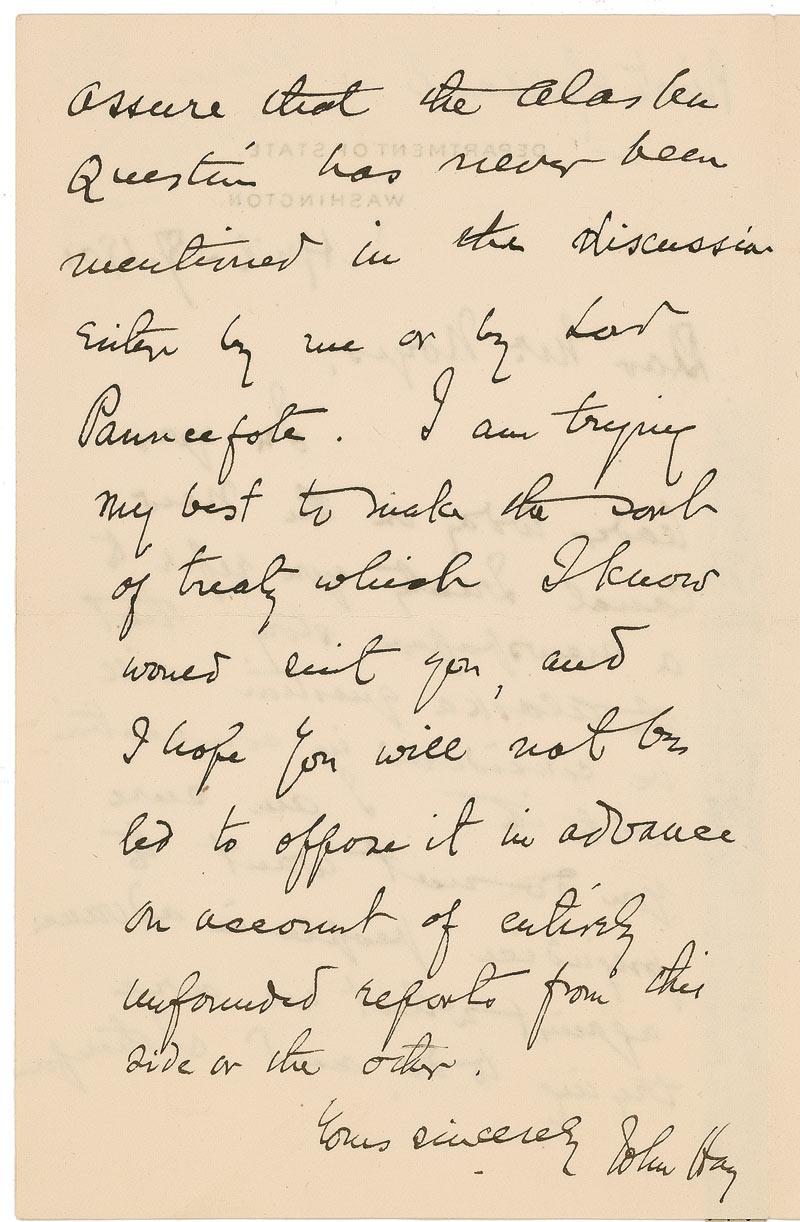 assure that the Alaskan
Question has never been
mentioned in the discussion
either by me or by Lord
Pauncefote. I am trying
my best to make the sort
of treaty which I know
would suit you, and
I hope you will not be
led to oppose it in advance
on account of entirely
unfounded reports from this
side or the other.
Yours sincerely John Hay
DEPARTMENT OF STATE
WASHINGTON